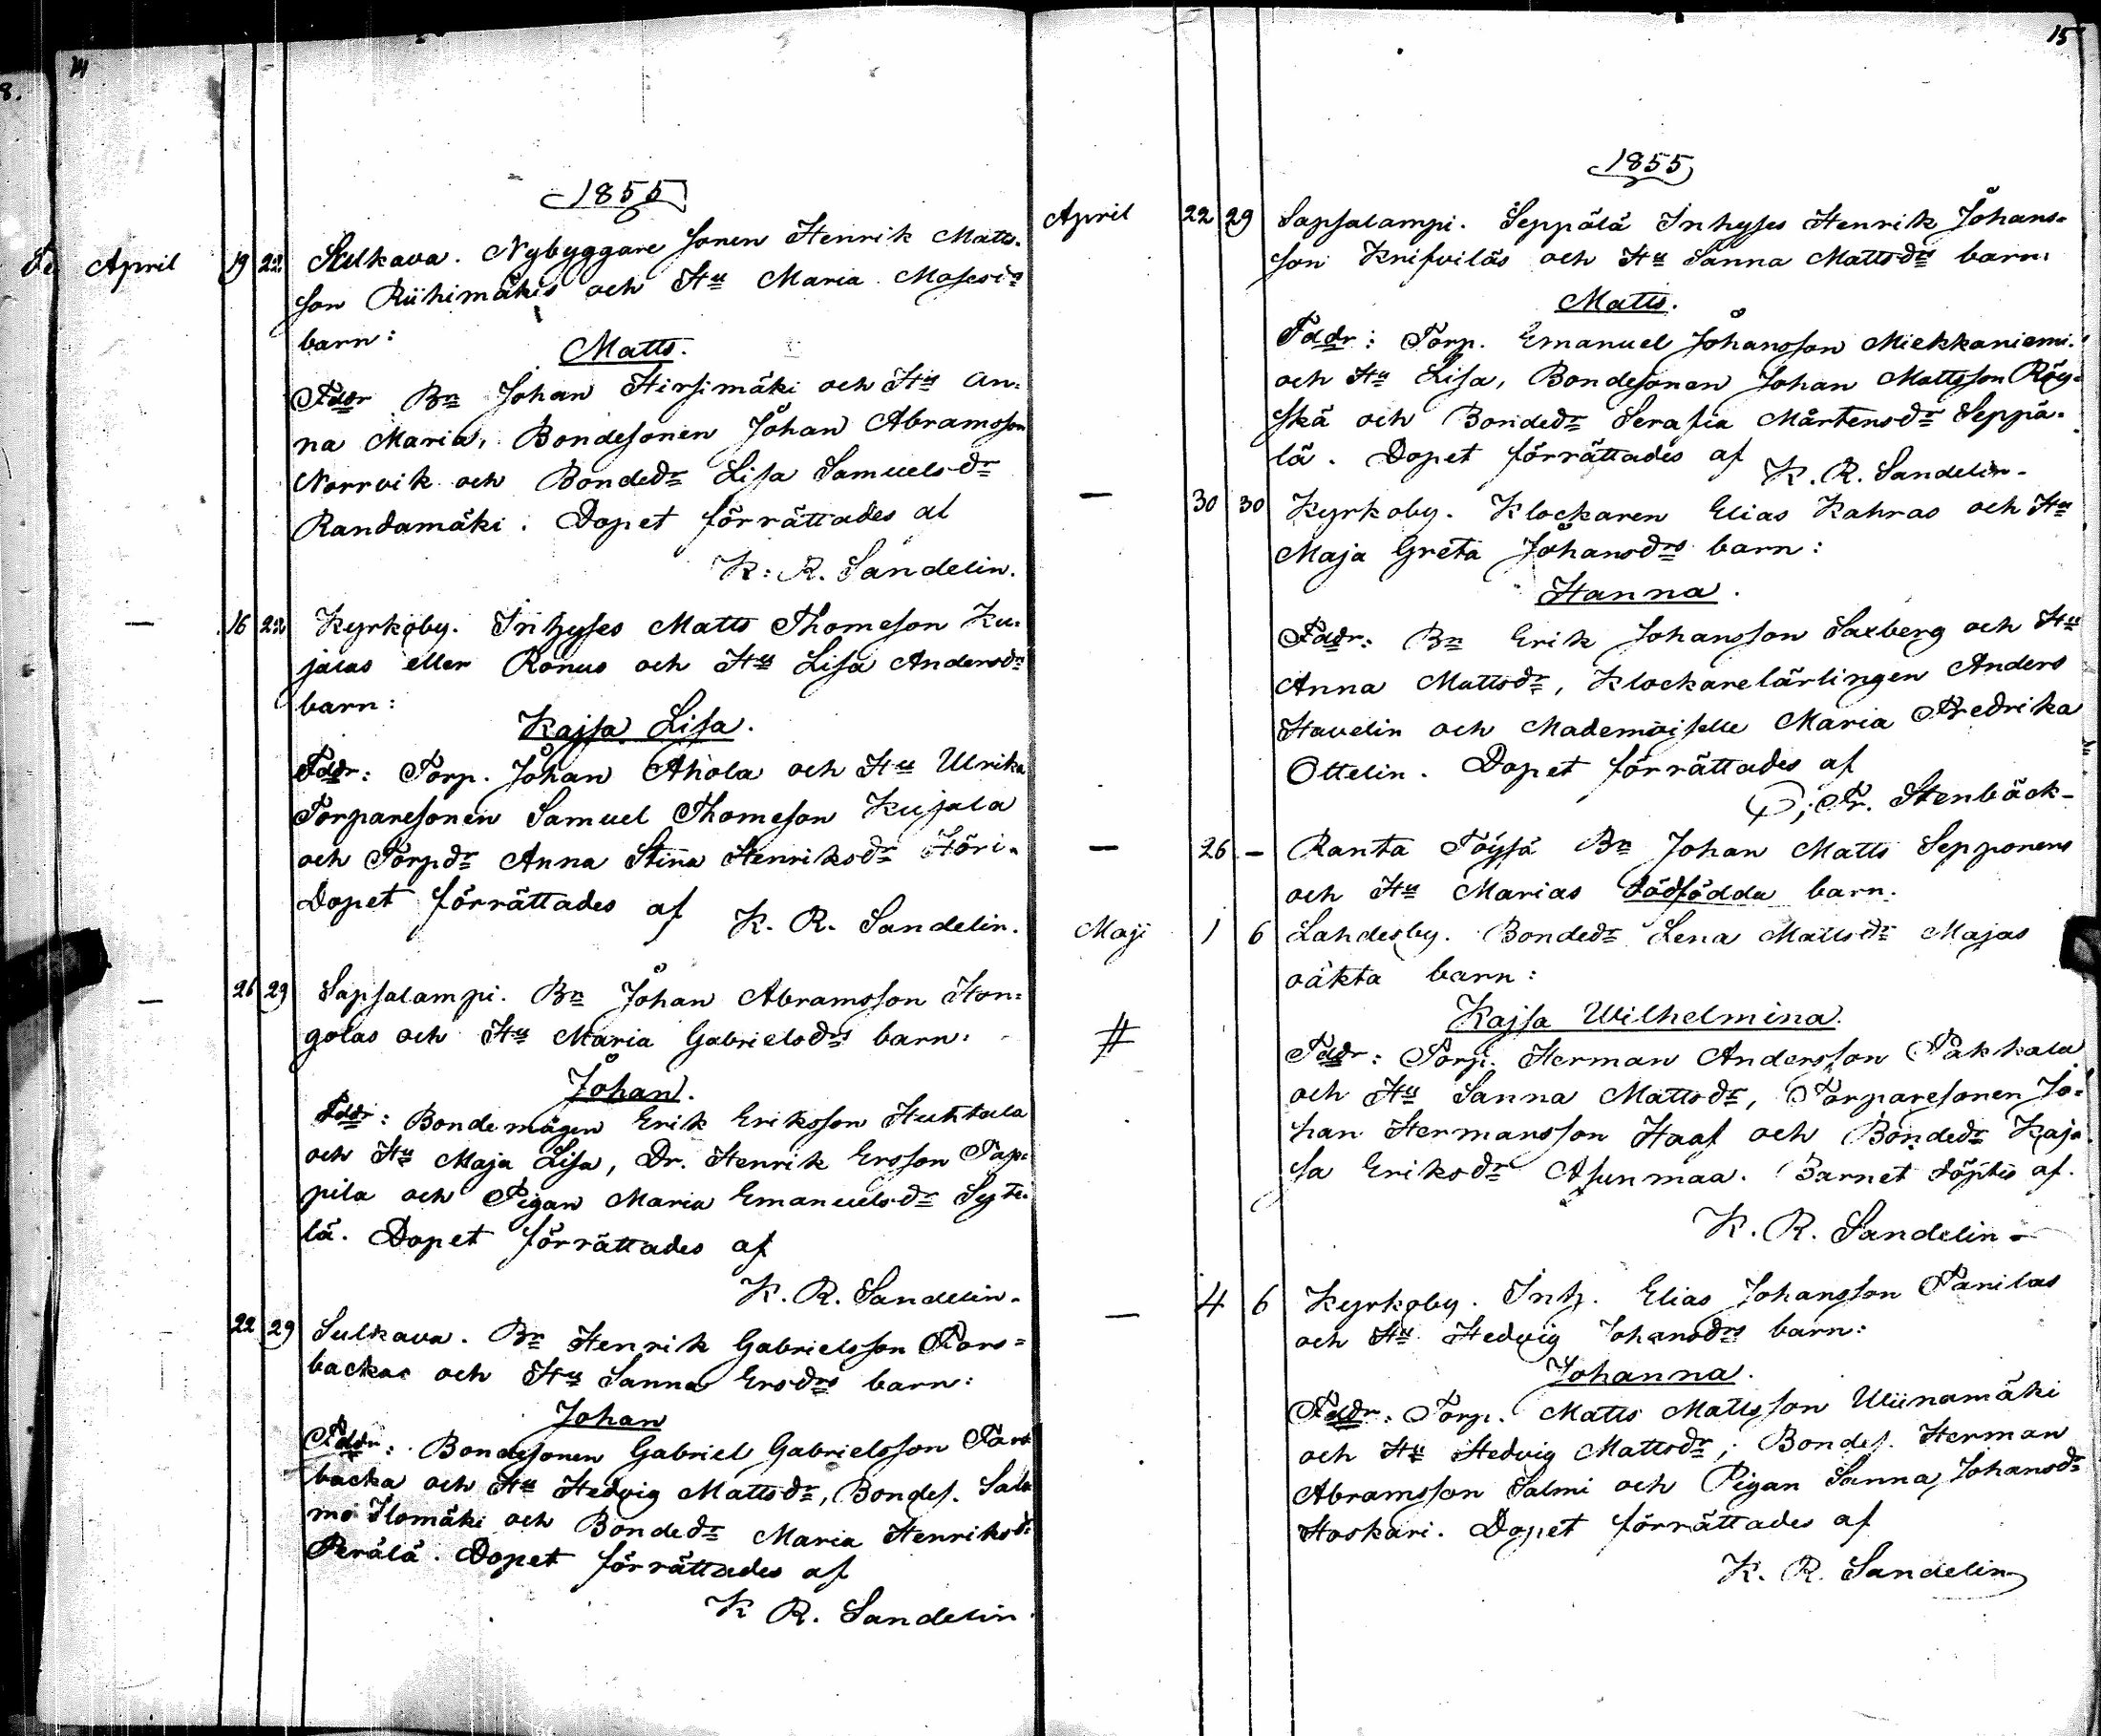 14
8.
1855
April 19 22 Sulkava. Nybyggare sonen Henrik Matts-
son Riihimäkis och Hu Maria Mosesdr
barn:
Matts.
Fddr Bn Johan Hirsimäki och Hu An-
na Maria, Bondesonen Johan Abramsson
Norrvik och Bondedr Lisa Samuelsdr
Randamäki. Dopet förrättades af
K. R. Sandelin.
— 16 22 Kyrkoby. Inhyses Matts Thomeson Ku-
jalas eller Ronus och Hu Lisa Andersdr
barn:
Kajsa Lisa.
Fddr: Torp. Johan Ahola och Hu Ulrika
Torparesonen Samuel Thomeson Kujala
och Torpdr Anna Stina Henriksdr Höri.
Dopet förrättades af K. R. Sandelin.
— 26 29 Sapsalampi. Bn Johan Abramsson Hon-
golas och Hu Maria Gabrielsdrs barn:
Johan.
Fddr: Bondemågen Erik Eriksson Huhtala
och Hu Maja Lisa, Dr. Henrik Ersson Pap-
pila och Pigan Maria Emanuelsdr Syte-
lä. Dopet förrättades af
K. R. Sandelin.
22 29 Sulkava. Bn Henrik Gabrielsson Fors-
backas och Hu Sanna Ersdrs barn:
Johan
Fddr: Bondesonen Gabriel Gabrielsson Fors
backa och Hu Hedvig Mattsdr, Bondes. Salo
mo Ilomäki och Bondedr Maria Henriksdr
Perälä. Dopet förrättades af
K R. Sandelin
15
1855
April 22 29 Sapsalampi. Seppälä Inhyses Henrik Johans-
son Knifvilas och Hu Sanna Mattsdrs barn:
Matts.
Fddr: Torp. Emanuel Johansson Miekkaniemi
och Hu Lisa, Bondesonen Johan Mattsson Röy-
skä och Bondedr Serafia Mårtensdr Seppä-
lä. Dopet förrättades af
K. R. Sandelin.
— 30 30 Kyrkoby. Klockaren Elias Kahras och Hu
Maja Greta Johansdrs barn:
Hanna.
Fddr: Bn Erik Johansson Saxberg och Hu
Anna Mattsdr, Klockarelärlingen Anders
Havelin och Mademoiselle Maria Fredrika
Ottelin. Dopet förrättades af
Fr. Stenbäck
— 26 — Ranta Töysä Bn Johan Matts Sepponens
och Hu Marias dödfödda barn.
Maji 1 6 Lahdesby. Bondedr Lena Mattsdr Majas
oäkta barn:
Kajsa Wilhelmina.
# Fddr: Torp. Herman Andersson Pakkala
och Hu Sanna Mattsdr, Torparesonen Jo-
han Hermansson Haaf och Bondedr Kaj-
sa Eriksdr Asunmaa. Barnet döptes af.
K. R. Sandelin
— 4 6 Kyrkoby. Inh. Elias Johansson Panilas
och Hu Hedvig Johansdrs barn:
Johanna.
Fddr: Torp. Matts Mattsson Wiinamäki
och Hu Hedvig Mattsdr, Bondes. Herman
Abramsson Salmi och Pigan Sanna Johansdr
Hoskari. Dopet förrättades af
K. R. Sandelin